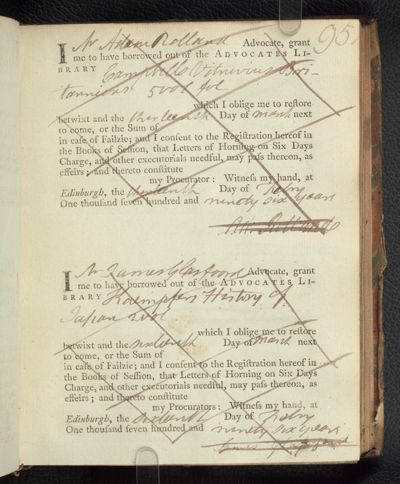 95
I Mr Adam Rolland Advocate, grant
me to have borrowed out of the ADVOCATES LI-
BRARY Campbells Vitruvius Bri-
tannicus 3 vol fol
which I oblige me to reſtore
betwixt and the thirteenth Day of March next
to come, or the Sum of
in caſe of Failzie; and I conſent to the Regiſtration hereof in
the Books of Seſſion, that Letters of Horning on Six Days
Charge, and other executorials needful, may paſs thereon, as
effeirs; and thereto conſtitute
my Procurator: Witneſs my hand, at
Edinburgh, the thirteenth Day of Febry
One thouſand ſeven hundred and ninety six years
I Mr James Glassford Advocate, grant
me to have borrowed out of the ADVOCATES LI-
BRARY Kaempfers History of
Japan 2 vol
which I oblige me to reſtore
betwixt and the sixteenth Day of March next
to come, or the Sum of
in caſe of Failzie; and I conſent to the Regiſtration hereof in
the Books of Seſſion, that Letters of Horning on Six Days
Charge, and other executorials needful, may paſs thereon, as
effeirs; and thereto conſtitute
my Procurators: Witneſs my hand, at
Edinburgh, the sixteenth Day of Febry
One thouſand ſeven hundred and ninety six years
James Glassford